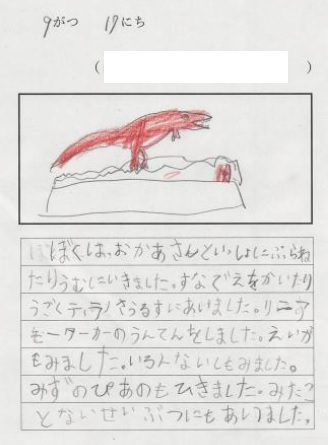 9がつ 17にち
(
)
ぼくは、おかあさんといっしょにぷらね
たりうむにいきました。すなでえをかいたり
うごくティラノさうるすにあいました。リニア
モーターカーのうんてんをしました。えいが
もみました。いろんないしもみました。
みずのぴあのもひきました。みたこ
とないせいぶつにもあいました。